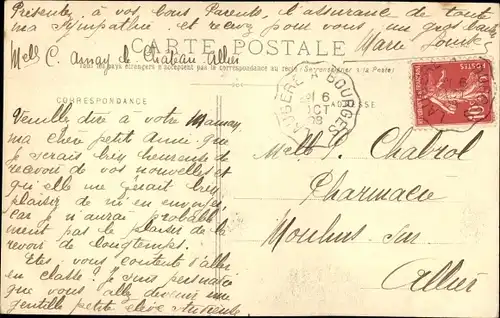 Présentez, à vos bons Parents, l'assurance de toute
ma sympathie et recevez pour vous, un gros baiser
Marie Louise
Mell C. Asnay le Château Allier
CARTE POSTALE
Tous les pays étrangers n'acceptent pas la correspondance au recto (Se renseigner à la Poste)
CORRESPONDANCE
ADRESSE
BOURGES
6
OCT
08
POSTES
10
Veuillez dire à votre Maman,
ma chère petite Amie que
je serais bien heureuse de
recevoir de vos nouvelles et
qu'elle me ferait bien
plaisir de m'en envoyer,
car je n'aurai probable
ment pas le plaisir de la
revoir de longtemps.
Etes vous contente d'aller
en classe? Je suis persuadée
que vous allez devenir une
gentille petite élève
Melle Y. Chabrol
Pharmacie
Moulins sur
Allier